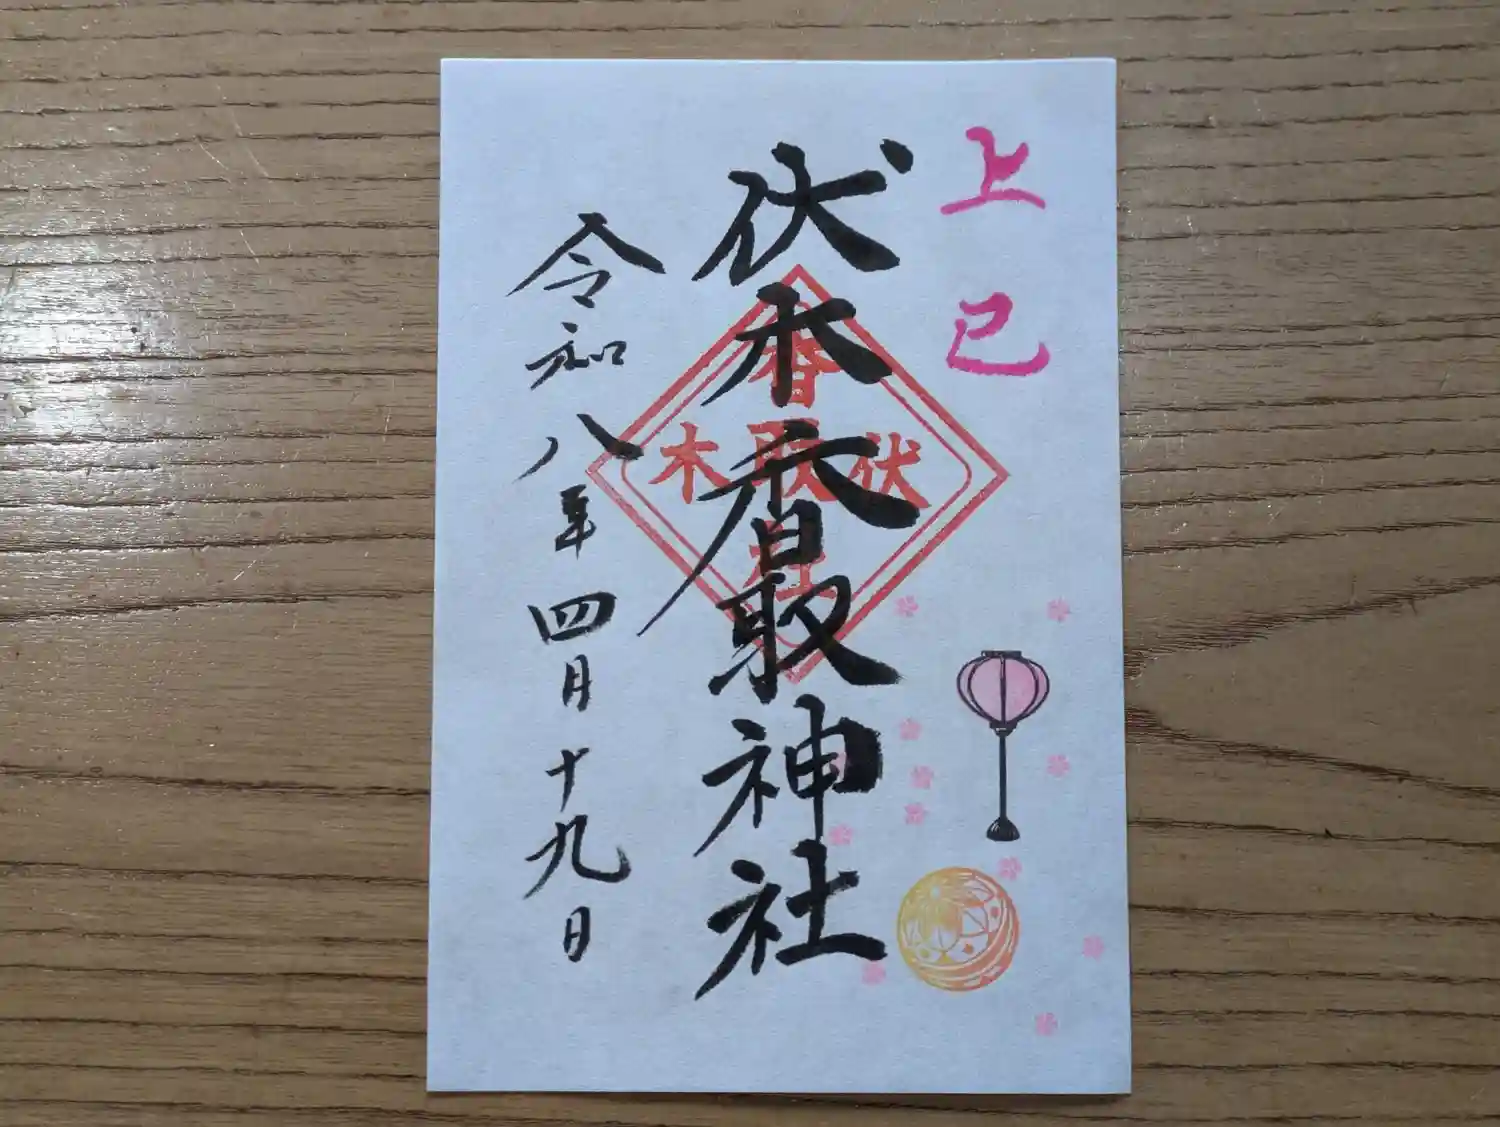 上巳
伏木香取神社
令和八年四月十九日
香取社
伏木